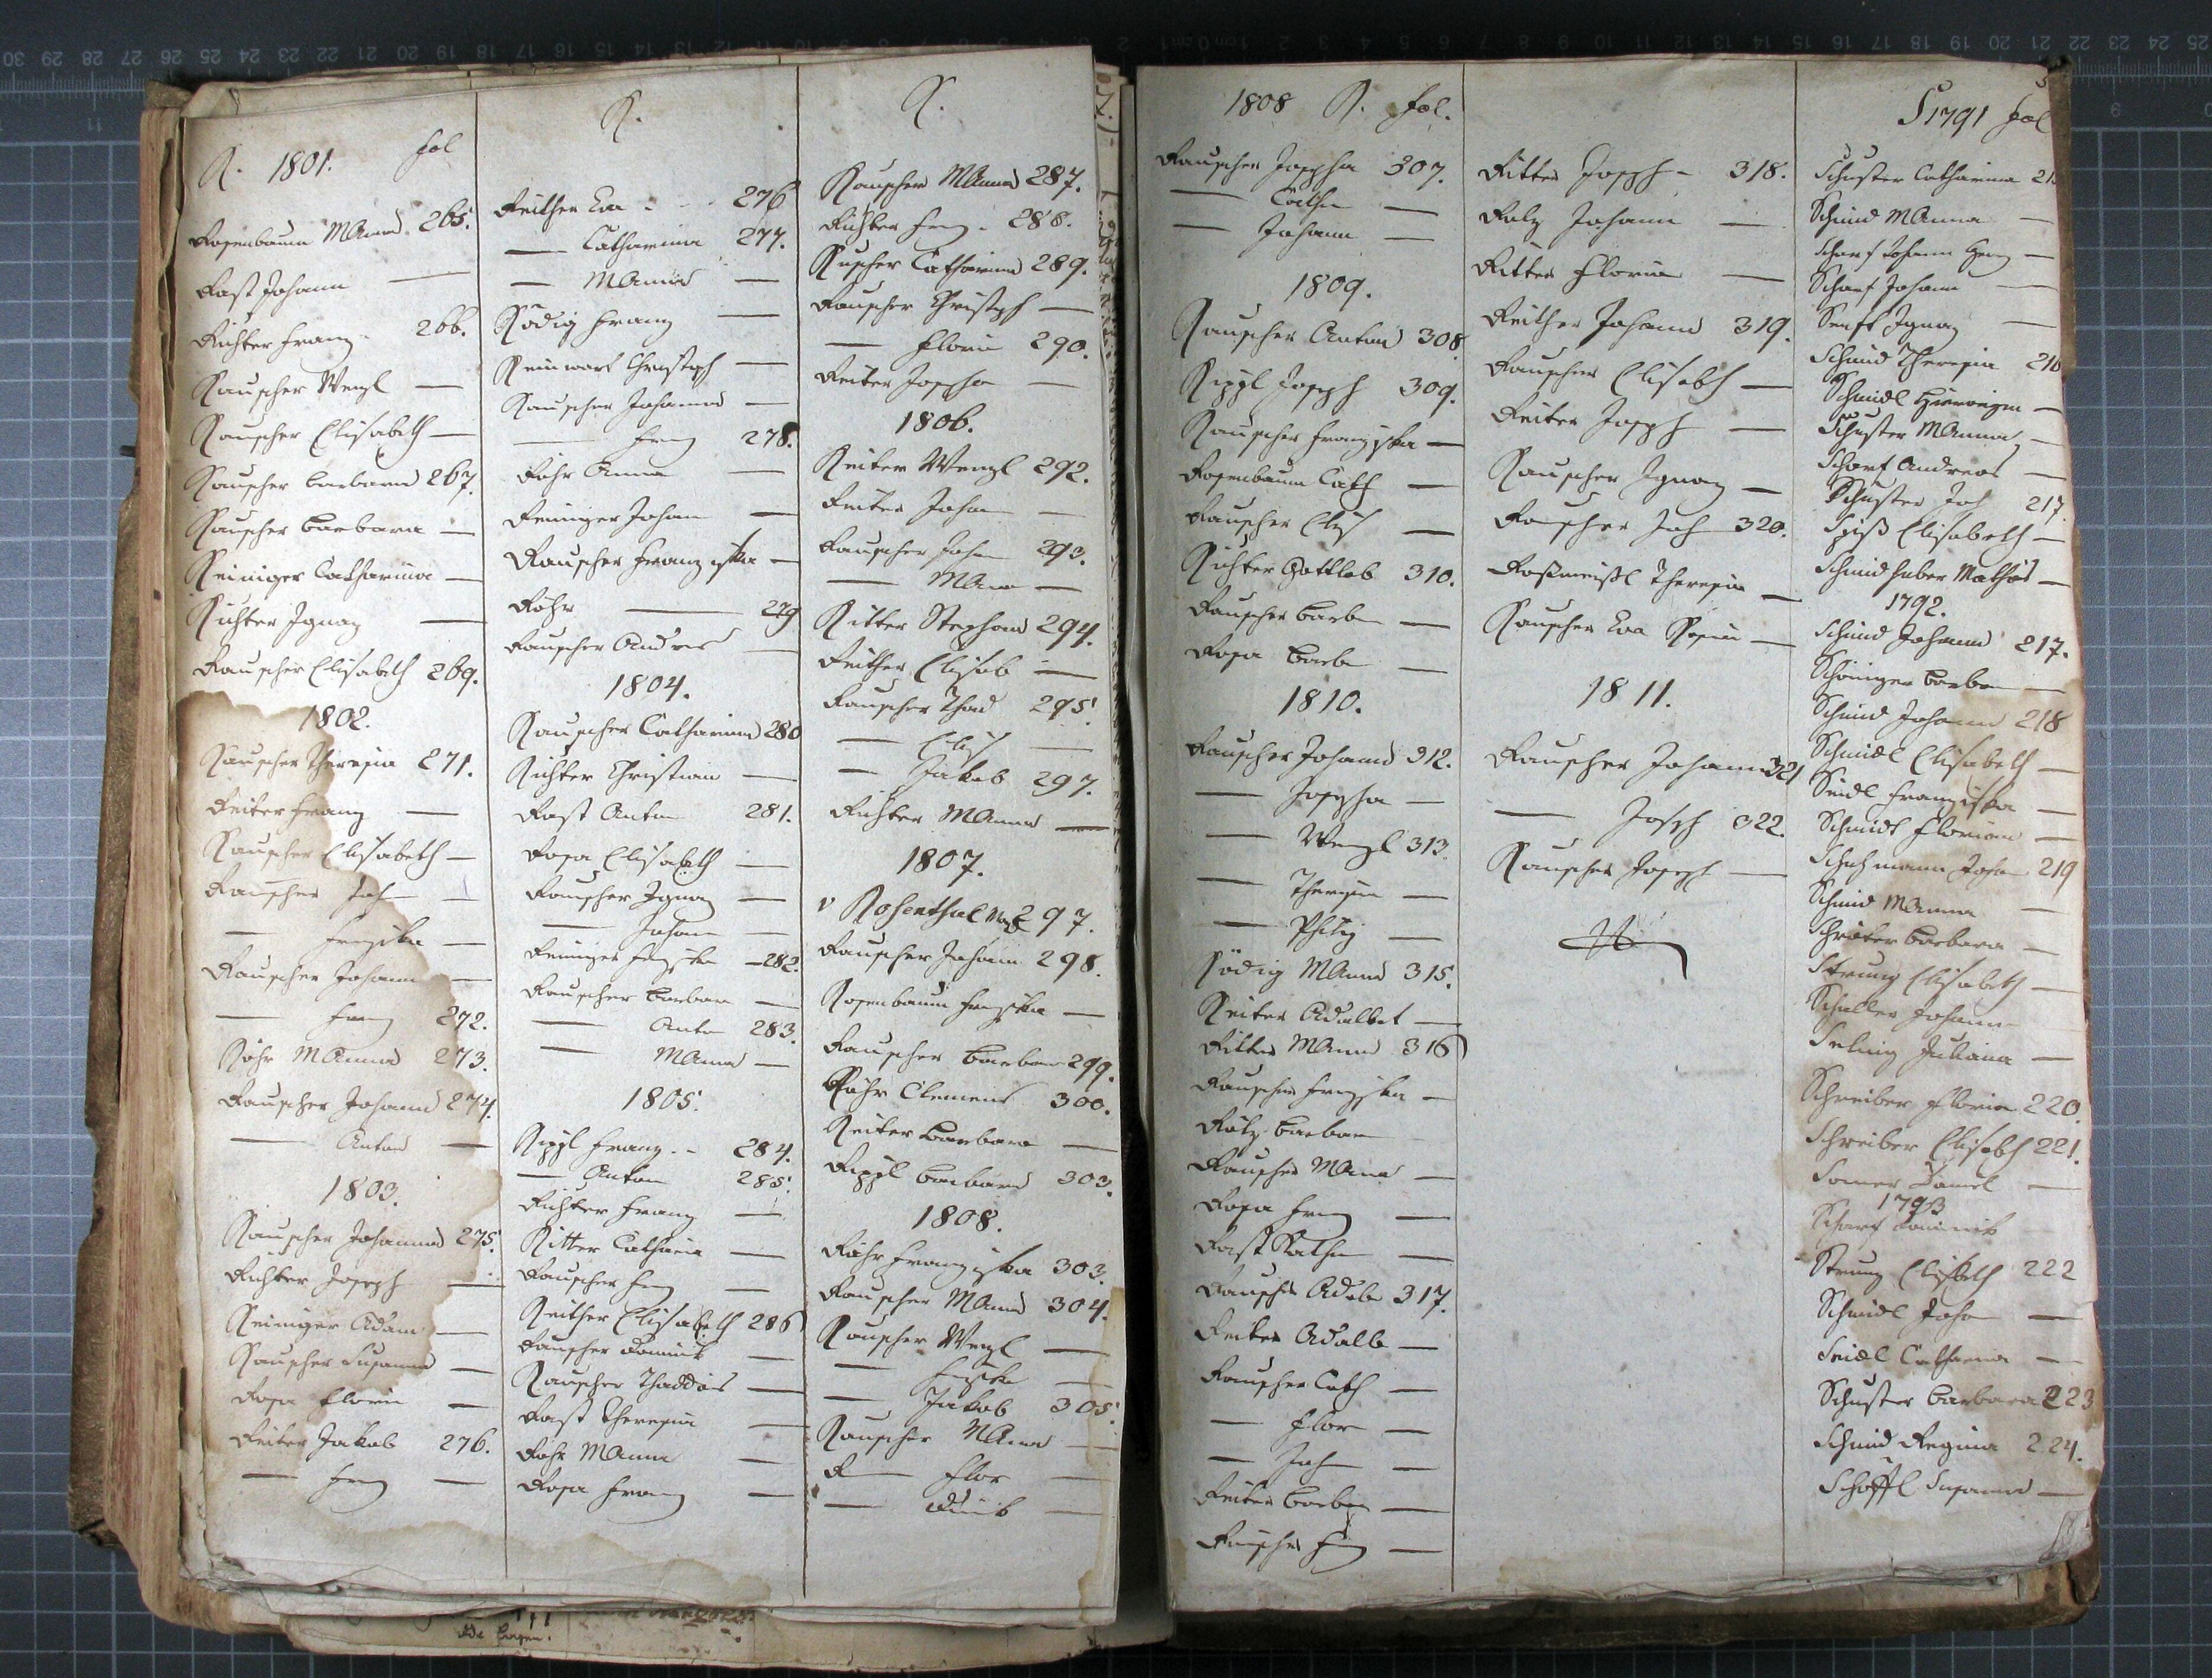 R. 1801. fol
Rosenbaum MAnna 265.
Rast Johann —
Richter Franz 266.
Rauscher Wenzl —
Rauscher Elisabeth —
Rauscher Barbara 267.
Rauscher Barbara —
Reiniger Catharina —
Richter Ignaz —
Rauscher Elisabeth 269.
1802.
Rauscher Theresia 271.
Reiter Franz —
Rauscher Elisabeth —
Rauscher Joh —
— Franziska —
Rauscher Johann —
— Franz 272.
Röhr MAnna 273.
Rauscher Johann 274.
— Anton —
1803.
Rauscher Johanna 275.
Richter Joseph —
Reiniger Adam —
Rauscher Susanna —
Rosa Florin —
Reiter Jakob 276.
— Franz —
R.
Reither Eva - - 276
— Catharina 277.
— MAnna —
Rödig Franz —
Reinwart Christoph —
Rauscher Johanna —
— Franz 278.
Röhr Anna —
Reininger Johan —
Rauscher Franziska —
Röhr — 279
Rauscher Andres —
1804.
Rauscher Catharina 280
Richter Christian —
Rast Anton 281.
Rosa Elisabeth —
Rauscher Ignaz —
— Johann —
Reiniger Franziska — 282.
Rauscher Barbara —
— Anton 283.
— MAnna —
1805.
Rippl Franz - - 284.
— Anton 285.
Richter Franz —
Ritter Catharia —
Rauscher Franz —
Reither Elisabeth 286
Rauscher Dominik —
Rauscher Thaddäs —
Rast Theresia —
Röhr MAnna —
Rosa Franz —
R.
Rauscher MAnna 287.
Richter Franz - 288.
Ruscher Catharina 289.
Rauscher Christoph —
— Florin 290.
Reiter Josepha —
1806.
Reiter Wenzl 292.
Reiter Johan —
Rauscher Johan 293.
— MAna —
Ritter Stephan 294.
Reither Elisab —
Rauscher Thad 295.
— Elis —
— Jakob 297.
Richter MAnna —
1807.
v Rosenthal 297.
Rauscher Johann 298.
Rosenbaum Franziska —
Rauscher Barbara 299.
Röhr Clemens 300.
Reiter Barbara —
Rippl Barbara 303.
1808.
Röhr Franziska 303.
Rauscher MAnna 304.
Rauscher Wenzl —
— Franziska —
— Jakob 305.
Rauscher MAnna —
R — Flor —
— —
1808 R. fol.
Rauscher Josepha 307.
— Catha —
— Johann —
1809.
Rauscher Anton 308.
Rippl Joseph 309.
Rauscher Franziska —
Rosenbaum Cath —
Rauscher Elis —
Richter Gottlob 310.
Rauscher Barb —
Rosa Barb —
1810.
Rauscher Johann 312.
— Josepha —
— Wenzl 313.
— Theresia —
— Philip —
Rödig MAnna 315.
Reiter Adalbet —
Ritter MAnna 316
Rauscher Franziska —
Rölz Barbar
Rauscher MAna —
Rosa Franz —
Rast Katha —
Rauscher Adalb 317.
Reiter Adalb —
Rauscher Cath —
— Flor —
— Joh —
Reiter Barbar —
Rauscher Franz —
Ritter Joseph - 318.
Rolz Johann —
Ritter Florian —
Reither Johann 319.
Rauscher Elisabth —
Reiter Joseph —
Rauscher Ignaz —
Rauscher Joh 320.
Rossmeissl Theresia —
Rauscher Eva Rosina —
1811.
Rauscher Johann 321
— Joseph 322.
Rauscher Joseph —
S 1791 fol
Schuster Catharina
Schmid MAnna —
Scharf Johann Georg —
Scharf Johann —
Senft Ignaz —
Schmid Theresia 216
Schmidl —
Schuster MAnna —
Scharf Andreas —
Schuster Joh 217.
Spiß Elisabeth —
Schmidhuber Mathias —
1792.
Schmid Johann 217.
Schöninger Barbar —
Schmid Johann 218
Schmidl Elisabeth —
Seidl Franziska —
Schmidt Florian —
Schuhmann Johan 219
Schmid MAnna —
Schröter Barbara —
Strunz Elisabeth —
Schaller Johann
Seling Juliana —
Schreiber Florian 220.
Schreiber Elisabth 221.
Somer Daniel —
1793
Scharf Dominik
Strunz Elisbeth 222
Schmidl Joha —
Seidl Catharina —
Schuster Barbara 223
Schmid Regina 224.
Schöffl Susanna —